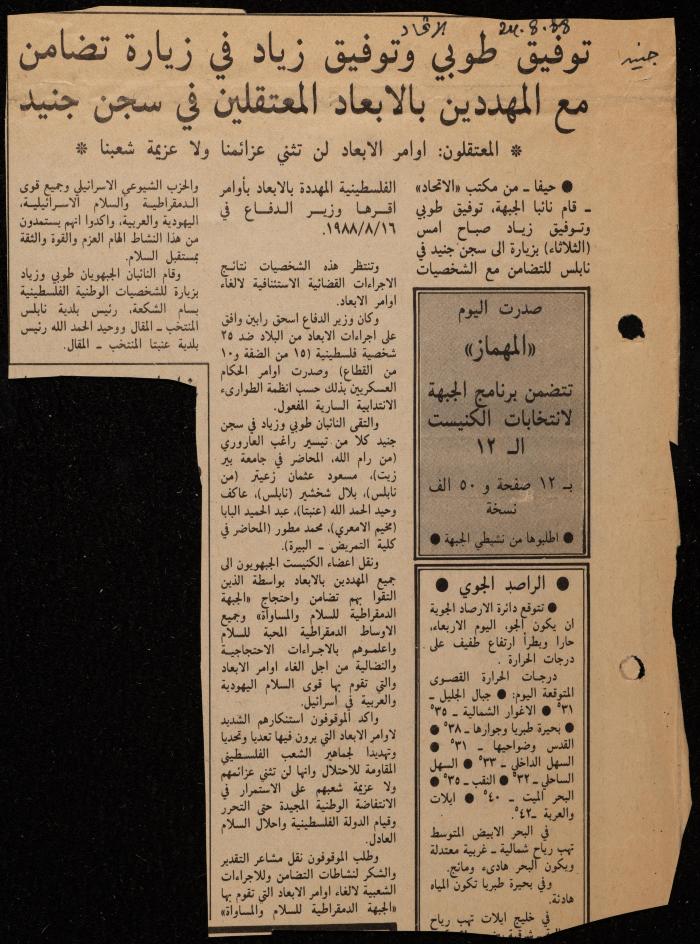 الاتحاد 24.8.88
جنيد
توفيق طوبي وتوفيق زياد في زيارة تضامن
مع المهددين بالابعاد المعتقلين في سجن جنيد
* المعتقلون: اوامر الابعاد لن تثني عزائمنا ولا عزيمة شعبنا *
● حيفا ـ من مكتب «الاتحاد»
ـ قام نائبا الجبهة، توفيق طوبي
وتوفيق زياد صباح امس
(الثلاثاء) بزيارة الى سجن جنيد في
نابلس للتضامن مع الشخصيات
الفلسطينية المهددة بالابعاد بأوامر
اقرها وزير الدفاع في
١٩٨٨/٨/١٦.
وتنتظر هذه الشخصيات نتائج
الاجراءات القضائية الاستئنافية لالغاء
اوامر الابعاد.
وكان وزير الدفاع اسحق رابين وافق
على اجراءات الابعاد من البلاد ضد ٢٥
شخصية فلسطينية (١٥ من الضفة و١٠
من القطاع) وصدرت اوامر الحكام
العسكريين بذلك حسب انظمة الطوارىء
الانتدابية السارية المفعول.
والتقى النائبان طوبي وزياد في سجن
جنيد كلا من تيسير راغب العاروري
(من رام الله، المحاضر في جامعة بير
زيت)، مسعود عثمان زعيتر (من
نابلس)، بلال شخشير (نابلس)، عاكف
وحيد الحمد الله (عنبتا)، عبد الحميد البابا
(مخيم الامعري)، محمد مطور (المحاضر في
كلية التمريض ـ البيرة).
ونقل اعضاء الكنيست الجبهويون الى
جميع المهددين بالابعاد بواسطة الذين
التقوا بهم تضامن واحتجاج «الجبهة
الدمقراطية للسلام والمساواة» وجميع
الاوساط الدمقراطية المحبة للسلام
واعلموهم بالاجراءات الاحتجاجية
والنضالية من اجل الغاء اوامر الابعاد
والتي تقوم بها قوى السلام اليهودية
والعربية في اسرائيل.
واكد الموقوفون استنكارهم الشديد
لاوامر الابعاد التي يرون فيها تعديا وتحديا
وتهديدا لجماهير الشعب الفلسطيني
المقاومة للاحتلال وانها لن تثني عزائمهم
ولا عزيمة شعبهم على الاستمرار في
الانتفاضة الوطنية المجيدة حتى التحرر
وقيام الدولة الفلسطينية واحلال السلام
العادل.
وطلب الموقوفون نقل مشاعر التقدير
والشكر لنشاطات التضامن وللاجراءات
الشعبية لالغاء اوامر الابعاد التي تقوم بها
«الجبهة الدمقراطية للسلام والمساواة»
والحزب الشيوعي الاسرائيلي وجميع قوى
الدمقراطية والسلام الاسرائيلية،
اليهودية والعربية، واكدوا انهم يستمدون
من هذا النشاط الهام العزم والقوة والثقة
بمستقبل السلام.
وقام النائبان الجبهويان طوبي وزياد
بزيارة للشخصيات الوطنية الفلسطينية
بسام الشكعة، رئيس بلدية نابلس
المنتخب ـ المقال ووحيد الحمد الله رئيس
بلدية عنبتا المنتخب ـ المقال.
صدرت اليوم
«المهماز»
تتضمن برنامج الجبهة
لانتخابات الكنيست
الـ ١٢
بـ ١٢ صفحة و ٥٠ الف
نسخة
● اطلبوها من نشيطي الجبهة ●
● الراصد الجوي ●
● تتوقع دائرة الارصاد الجوية
ان يكون الجو، اليوم الاربعاء،
حارا ويطرأ ارتفاع طفيف على
درجات الحرارة .
درجات الحرارة القصوى
المتوقعة اليوم: ● جبال الجليل ـ
٣١° ● الاغوار الشمالية ـ ٣٥°
● بحيرة طبريا وجوارها ـ ٣٨° ●
القدس وضواحيها ـ ٣١° ●
السهل الداخلي ـ ٣٣° ● السهل
الساحلي ـ ٣٢° ● النقب ـ ٣٥° ●
البحر الميت ـ ٤٠° ● ايلات
والعربة ـ ٤٢°.
في البحر الابيض المتوسط
تهب رياح شمالية ـ غربية معتدلة
ويكون البحر هادىء ومائج.
وفي بحيرة طبريا تكون المياه
هادئة.
في خليج ايلات تهب رياح